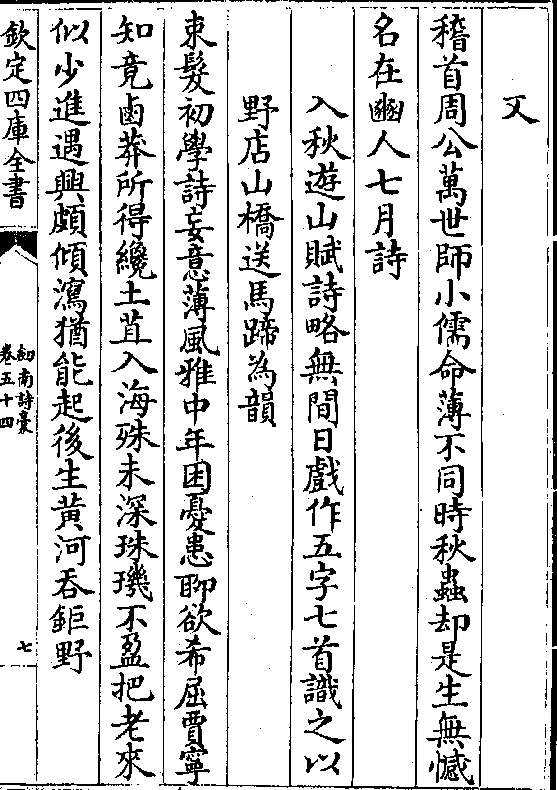 又
稽首周公萬世師小儒命薄不同時秋蟲却是生無憾
名在豳人七月詩
入秋遊山賦詩略無間日戲作五字七首識之以
野店山橋送馬蹄為韻
束髮初學詩妄意薄風雅中年困憂患聊欲希屈賈寧
知竟鹵莽所得纔土苴入海殊未深珠璣不盈把老來
似少進遇興頗傾瀉猶能起後生黃河吞鉅野
欽定四庫全書
劍南詩稾
卷五十四
七